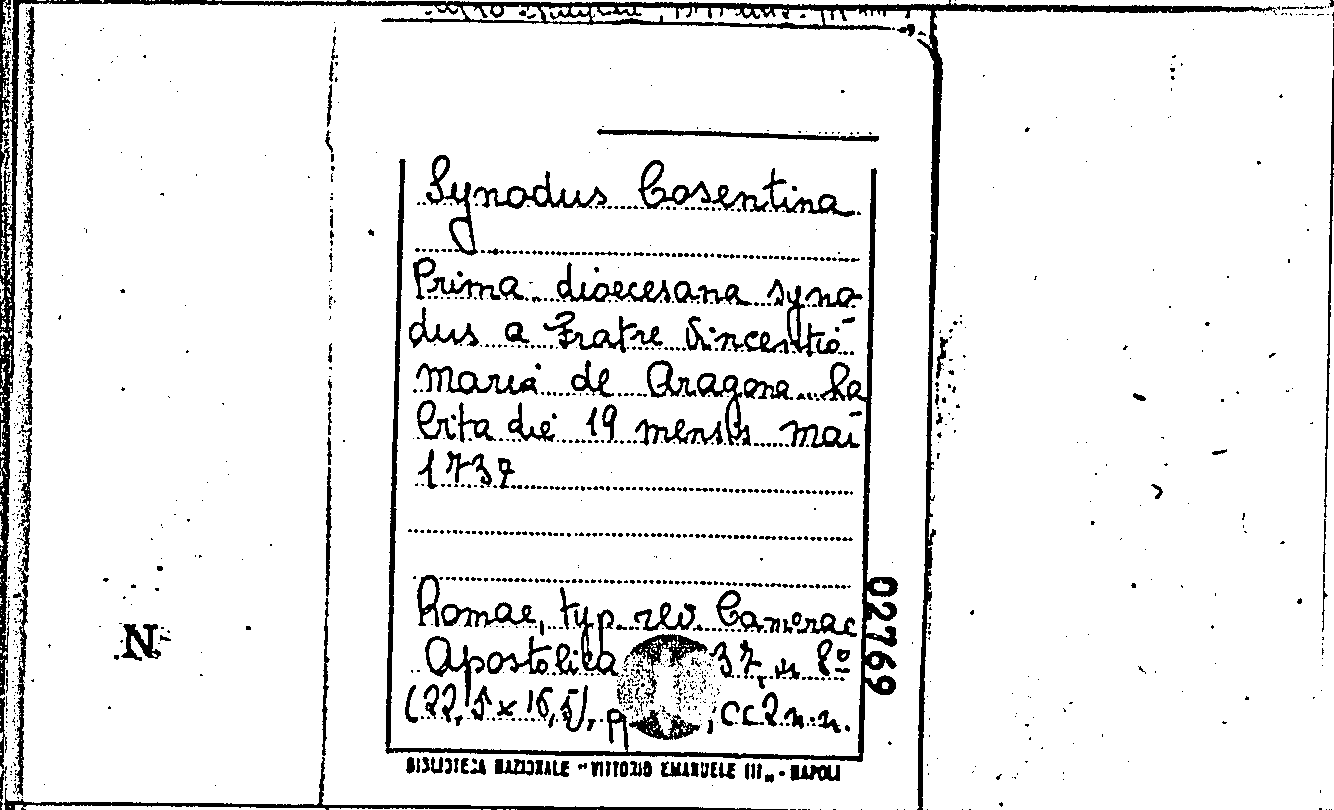 Synodus Cosentina
Prima dioecesana syno
dus a Fratre Vincentio
Maria de Aragona ha
bita die 19 mensis mai
1737
Romae, typ. rev. Camerae
Apostolica 37, in 8º
(22,5 x 16,5), p , cc 2 n.n.
02769
N
BIBLIOTECA NAZIONALE "VITTORIO EMANUELE III" - NAPOLI